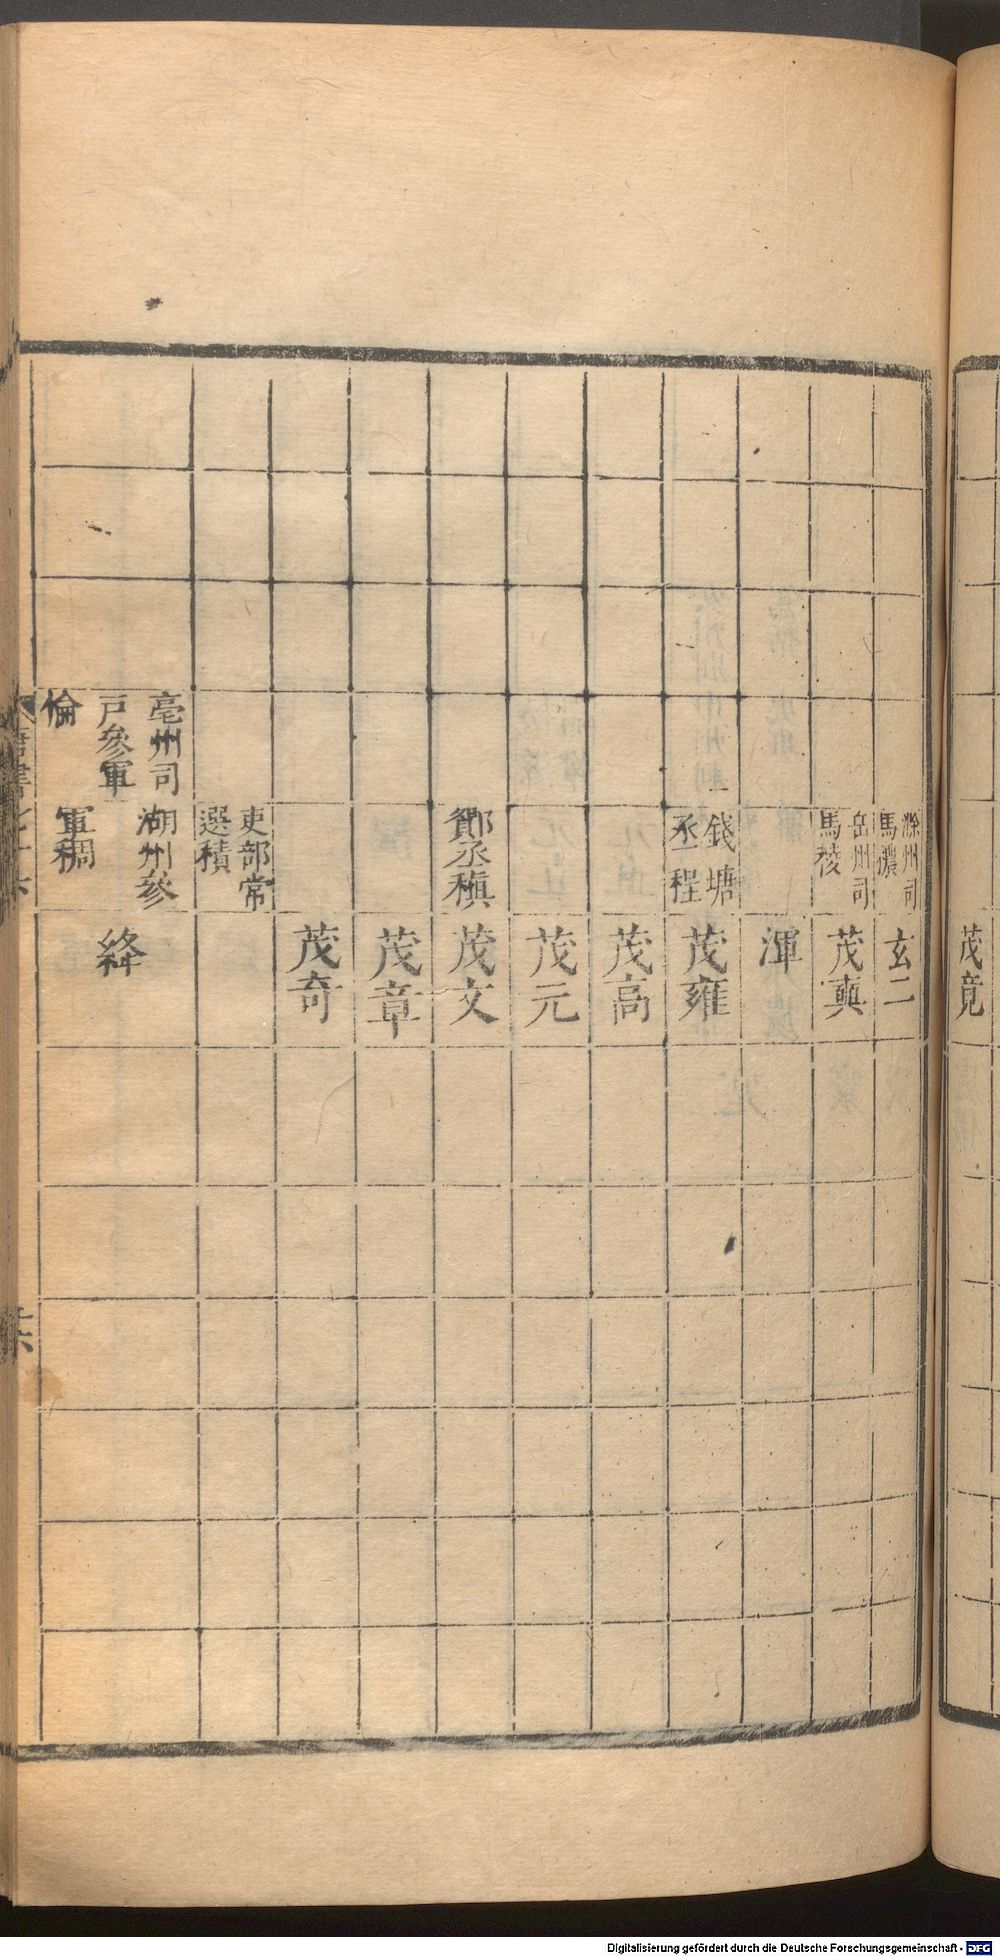 茂竟
滁州司
馬濃
玄二
岳州司
馬稜
茂寘
渾
錢塘
丞程
茂雍
茂高
茂元
鄮丞稹
茂文
茂章
茂奇
吏部常
選積
亳州司
戶參軍
倫
湖州參
軍稠
絳
Digitalisierung gefördert durch die Deutsche Forschungsgemeinschaft - DFG